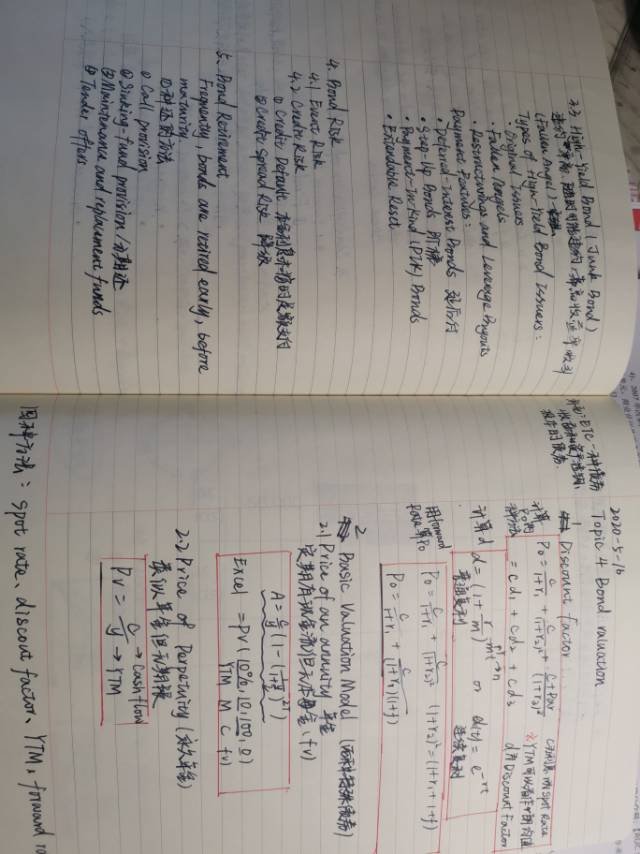 3.3 High-Yield Bond (Junk Bond)
(Fallen Angel)
Types of High-Yield Bond Issuers:
· Original Issuers
· Fallen Angels
· Restructurings and Leverage Buyouts
Payment Features:
· Deferred-Interest Bonds 延后付
· Step-Up Bonds 阶梯
· Payment-In-Kind (PIK) Bonds
· Extendable Reset
4. Bond Risk
4.1 Event Risk
4.2 Credit Risk
① Credit Default
② Credit Spread Risk 降级
5. Bond Retirement
Frequently, bonds are retired early, before
maturity
① Call provision
② Sinking-fund provision/分期还
③ Maintenance and replacement funds
④ Tender offers
2020-5-16
Topic 4 Bond valuation
1 Discount Factor
计算
P0 = C/(1+r1) + C/(1+r2)² + (C+Par)/(1+r3)³
= cd1 + cd2 + cd3
d为Discount Factor
计算d d = (1 + r/m)^-mt or d(t) = e^-rt
普通复利 连续复利
用forward
rate算P0
P0 = C/(1+r1) + C/(1+r2)² (1+r2)² = (1+r1)(1+f)
P0 = C/(1+r1) + C/(1+r1)(1+f)
2 Basic Valuation Model
2.1 Price of an annuity 年金
定期有现金流但无本金(fv)
Excel = PV(10%, 10, 100, 0)
YTM M C fv
2.2 Price of Perpetuity (永久年金)
类似年金但无期限
PV = C/y → cash flow
→ YTM
四种方法: spot rate、discout factor、YTM、forward